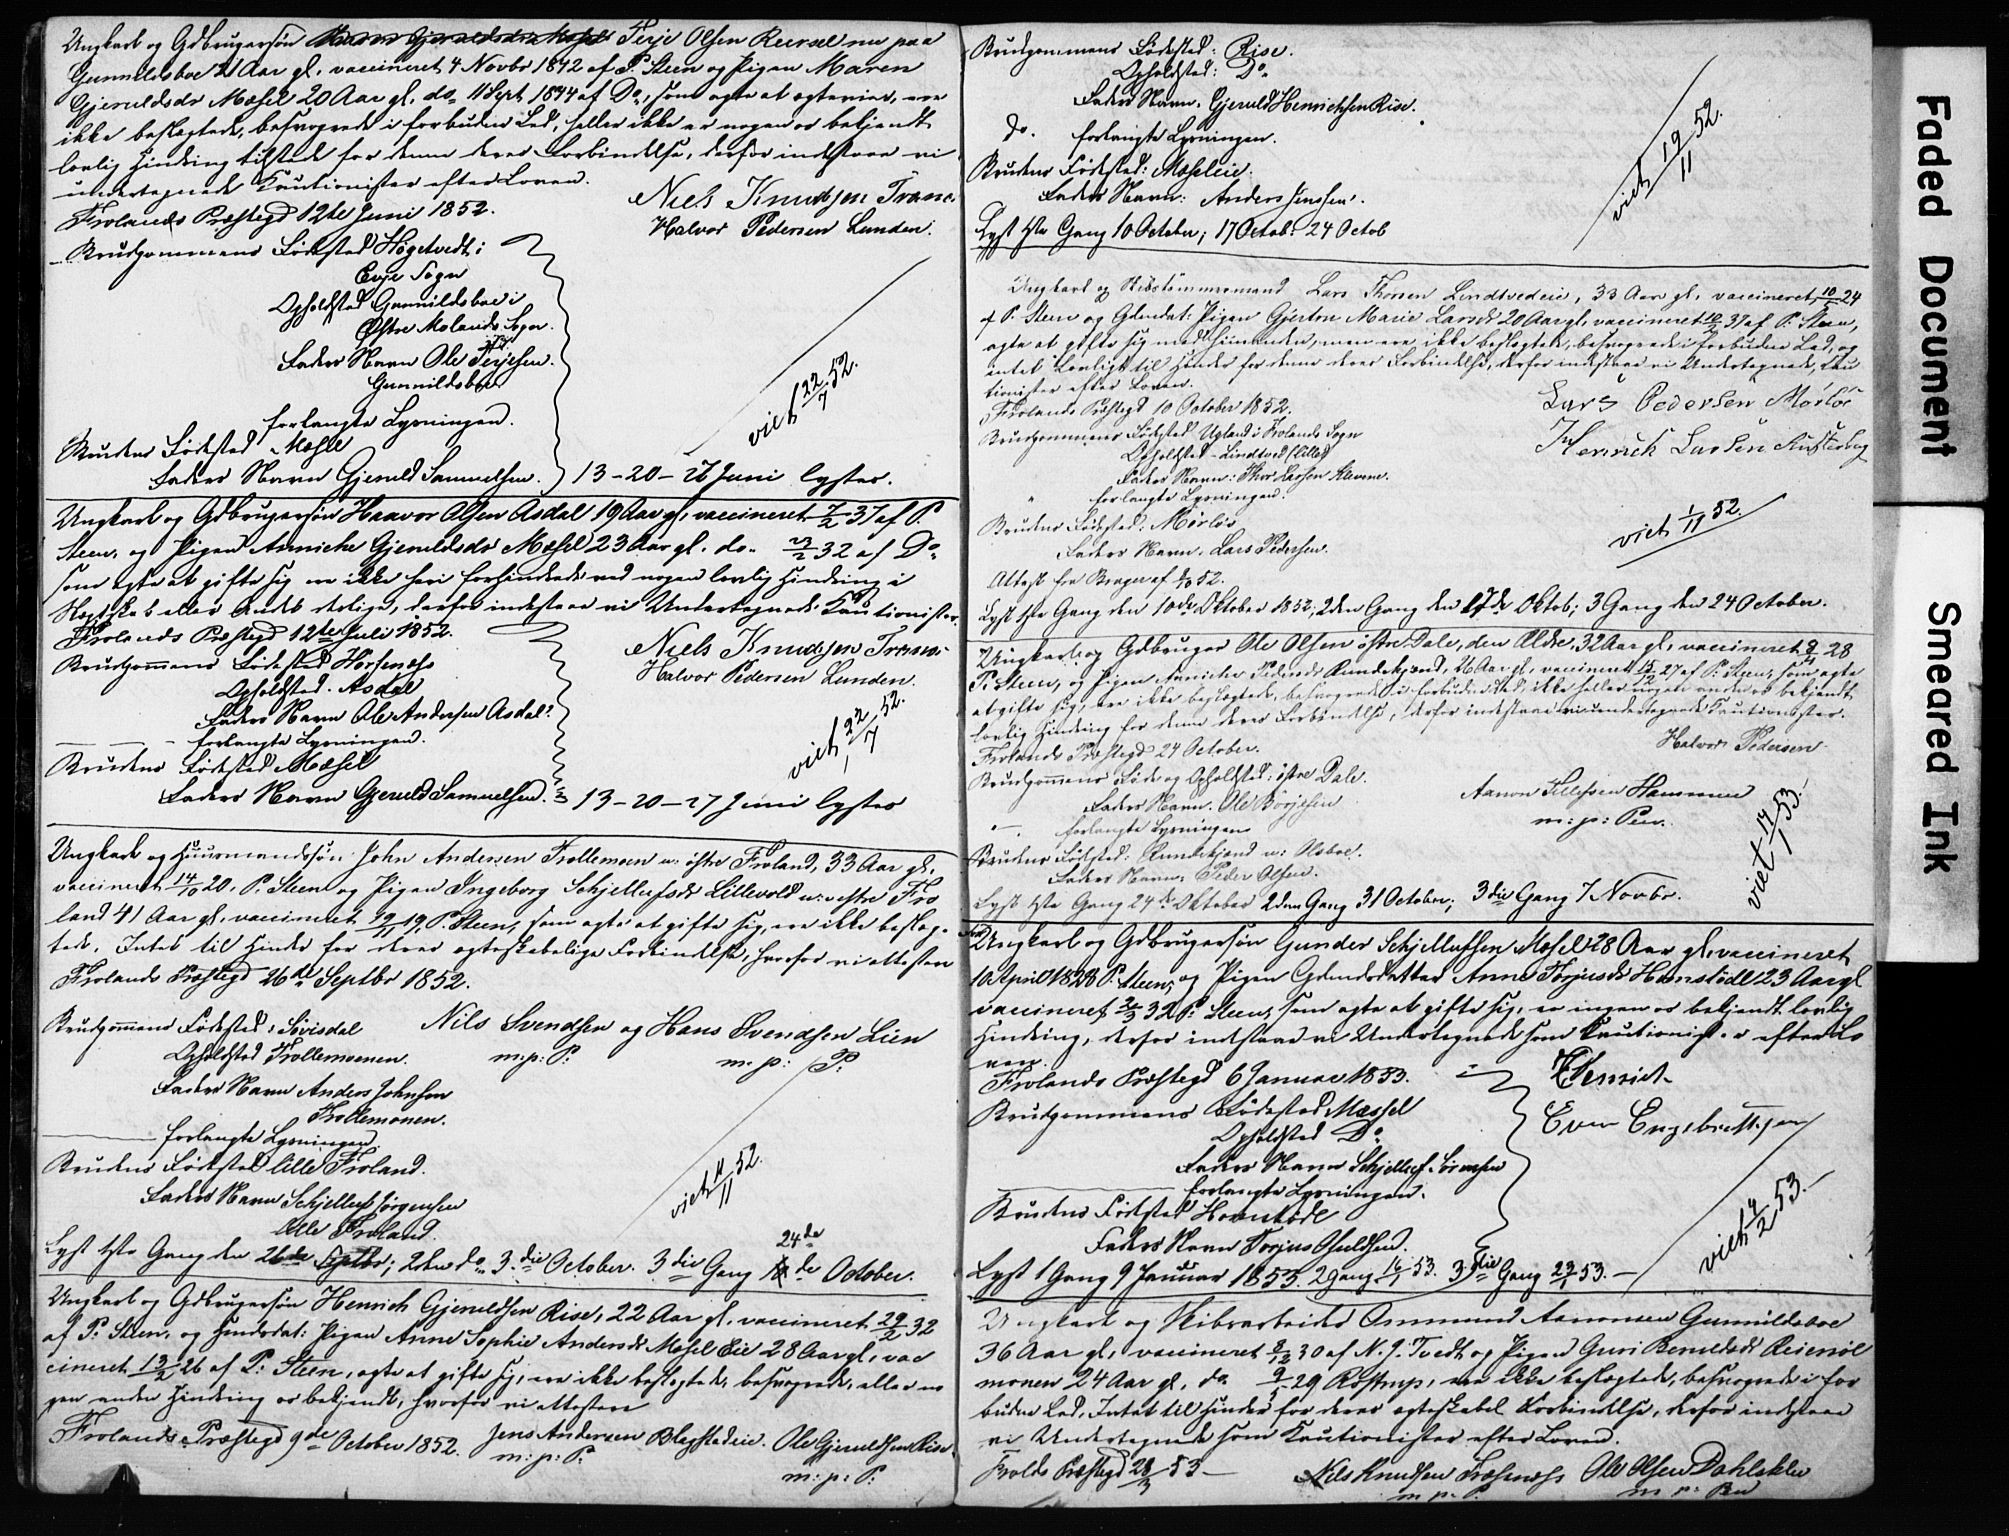 Ungkarl og Gdbrugersøn Terje Olsen Reersel nu paa
Gunnildsboe 21 Aar gl. vaccineret 4 Novbr 1842 af P. Steen og Pigen Maren
Gjeruldsdr Mæsel 20 Aar gl. do 11 Sept 1844 af Do, som agte at ægtevies, ere
ikke beslægtede, besvogrede i forbuden Led, heller ikke er nogen os bekjendt
lovlig Hindring tilstede for denne deres Forbindelse, derfor indestaae vi
undertegnede Cautionister efter Loven.
Frolands Præstegd 12te Juni 1852.
Niels Knudsen Trane
Halvor Pedersen Lunden.
Brudgommens Fødested Høgetvedt i
Evje Sogn
Opholdsted Gunnildsboe i
Østre Molands Sogn.
Faders Navn Ole Terjesen.
Gunnildsboe
forlangte Lysningen.
Brudens Fødested Mæsel
Faders Navn Gjeruld Samuelsen.
viet 22/7 52.
13-20-27 Juni lyster.
Ungkarl og Gdbrugersøn Haavor Olsen Asdal 19 Aar gl. vaccineret 7/2 37 af P.
Steen, og Pigen Anniche Gjeruldsdr Mæsel 23 Aar gl. do. 23/2 32 af Do
som agte at gifte sig ere ikke heri forhindrede ved nogen lovlig Hindring i
Slegtskab eller Andet deslige, derfor indestaae vi Undertegnede Cautionister.
Frolands Præstegd 12te Juli 1852.
Niels Knudsen Trane
Halvor Pedersen Lunden.
Brudgommens Fødested Horsenæs
Opholdsted. Asdal
Faders Navn Ole Andersen Asdal.
forlangte Lysningen.
Brudens Fødested Mæsel
Faders Navn Gjeruld Samuelsen.
viet 22/7 52.
13-20-27 Juni lyster
Ungkarl og Huusmandssøn John Andersen Trollemoen u. østre Froland, 33 Aar gl.
vaccineret 14/10 20. P. Steen og Pigen Ingeborg Schjellufsdr Lillevold u. vestre Fro
land 41 Aar gl. vaccineret 29/11 19, P. Steen, som agte at gifte sig, ere ikke beslæg-
tede. Intet til Hinder for deres ægteskabelige Forbindelse, hvorfor vi attestere
Frolands Præstegd 26de Septbr 1852.
Brudgommens Fødested: Sövisdal
Nils Svendsen og Hans Svendsen Lien
m: p: P. m: p: P.
Opholdsted Trollemoenen.
Faders Navn Anders Johnsen
Trollemonen.
forlangte Lysningen.
Brudens Fødested lille Froland.
Faders Navn Schjelluf Jørgensen
lille Froland.
viet 11/11 52.
Lyst 1ste Gang den 26de Septbr; 2den do. 3die October. 3die Gang 24de October.
Ungkarl og Gdbrugersøn Henrich Gjeruldsen Rise, 22 Aar gl. vaccineret 29/2 32
af P. Steen, og Huusdat: Pigen Anne Sophie Andersdr Mæsel Eie 28 Aar gl, vac
cineret 13/2 26 af P. Steen, agte at gifte sig, ere ikke beslegtede, besvogrede, eller no
gen anden Hindring os bekjendt, hvorfor vi attestere
Frolands Præstegd 9de October 1852.
Jens Andersen Blagstadeie. Ole Gjeruldsen Rise.
m: p: P. m: p: P.
Brudgommens Fødested: Rise.
Opholdsted: Do
Faders Navn. Gjeruld Henrichsen Rise.
do. forlangte Lysningen.
Brudens Fødested: Mæseleie.
Faders Navn: Anders Jenssen.
viet 19/11 52.
Lyst 1ste Gang 10 October; 17 Octob. 24 Octob
Ungkarl og Skibstømmermand Lars Thorsen Lindtvedeie, 33 Aar gl. vaccineret 10/ 24
af P. Steen og Gdmdat. Pigen Gjertru Marie Larsdr 20 Aar gl. vaccineret 16/2 37 af P. Steen,
agte at gifte sig med hinanden, men ere ikke beslægtede, besvogrede i forbuden Led, og
intet Lovligt til Hinder for denne deres Forbindelse, derfor indestaae vi Undertegnede, Cau
tionister efter Loven.
Frolands Præstegd 10 October 1852.
Lars Pedersen Mørlös
Henrick Larsen
Brudgommens Fødested Ugland i Frolands Sogn
Opholdsted Lindtved
Faders Navn: Thor Larsen
forlangte Lysningen.
Brudens Fødested: Mörlös
Faders Navn. Lars Pedersen.
viet 1/11 52.
Attest fra Brager af 52.
Lyst 1ste Gang den 10de Oktober 1852; 2den Gang den 17de Oktob; 3 Gang den 24 October.
Ungkarl og Gdbruger Ole Olsen østre Dale, den Ældre, 32 Aar gl, vaccineret 28
P. Steen, og Pigen Anniche Pedersdr 26 Aar gl, vaccineret 15/12 27 af P. Steen, som agte
at gifte sig, ere ikke beslægtede, besvogrede i forbuden Led, ikke heller nogen anden os bekjendt
lovlig Hindring for denne deres Forbindelse, derfor indestaae vi undertegnede Cautionister.
Frolands Præstegd 24 October.
Halvor Pedersen
Brudgommens Føde og Opholdsted: østre Dale.
Aanon Tellefsen Hammer
m: p: Pen.
Faders Navn. Ole Börjesen
forlangte Lysningen
Brudens Fødested:
Faders Navn: Peder Olsen.
viet 14/1 53.
Lyst 1ste Gang 24de Oktober 2den Gang 31 October; 3die Gang 7 Novbr.
Ungkarl og Gdbrugersøn Gunder Schjellufsen Mæsel 28 Aar gl. vaccineret
10 April 1828 P. Steen, og Pigen Gdmdsdatter Anne Torjusdr Hornstödl 23 Aar gl
vaccineret 32 P. Steen, som agte at gifte sig, er ingen os bekjendt lovlig
Hindring, derfor indstaae vi Undertegnede som Cautionister efter Lo
ven.
Frolands Præstegd 6 Januar 1853.
Even Engebrethsen
Brudgommens Fødested Mæsel
Opholdsted Do
Faders Navn Schjelluf Sørensen
forlangte Lysningen.
Brudens Fødested Hornstödl
Faders Navn Torjus
viet 4/2 53.
Lyst 1 Gang 9 Januar 1853. 2 gang 16/1 53. 3die Gang 23/1 53.
Ungkarl og Skibsarbeider Ommund Aanonsen Gunnildsboe
36 Aar gl, vaccineret 8/12 30 af N. J. Tvedt og Pigen Guri Berulsdr Reiersöl
monen 24 Aar gl. do 9/5 29 Rostrup, ere ikke beslægtede, besvogrede i for
buden Led, Intet til Hinder for deres ægteskabel Forbindelse, derfor indstaae
vi Undertegnede som Cautionister efter Loven.
Frolds Præstegd 28/ 53
Nils Knudsen Ole Olsen Dahlskilen
m p: P. m p: Pen
Faded Document
Smeared Ink